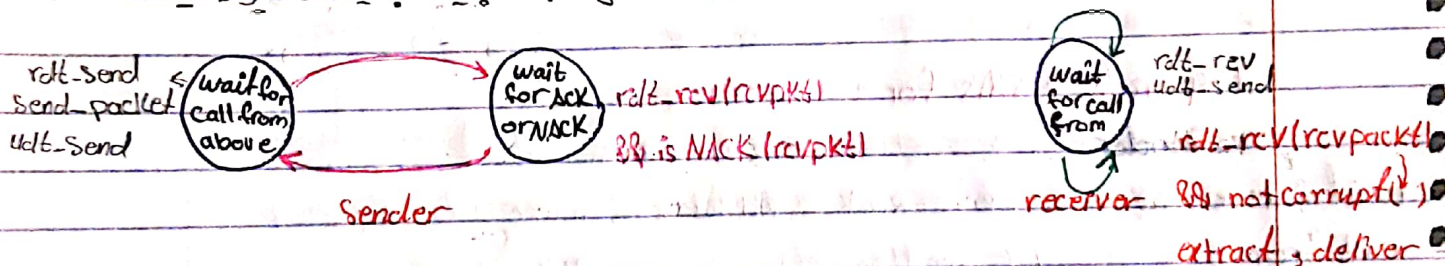 rdt_send
send_packet
udt_send
wait for
call from
above
wait
for ACK
or NACK
rdt_rcv(rcvpkt)
&& is NACK(rcvpkt)
Sender
wait
for call
from
rdt_rev
udt_send
rdt_rcv(rcvpackt)
receiver && notcorrupt( )
extract, deliver